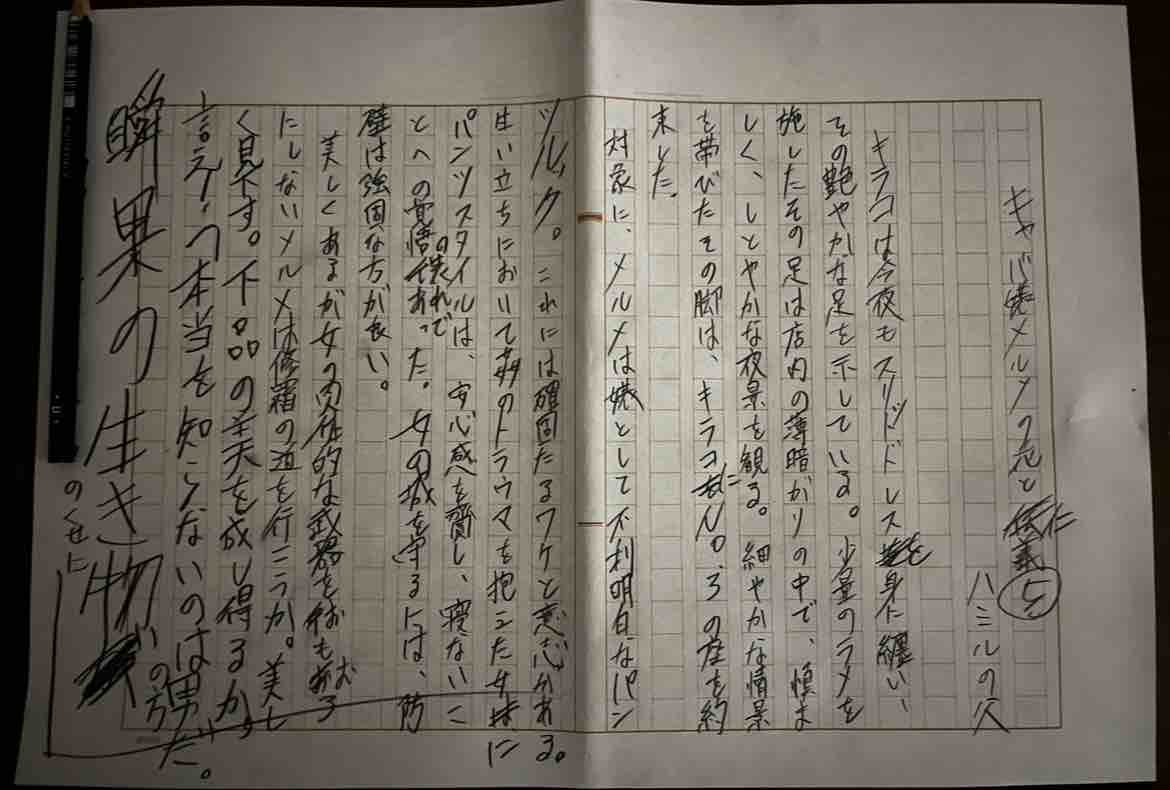 キャバ嬢メルメの花と仁義⑤
ハミルの穴
キラコは今夜もスリッドドレスを身に纏い、
その艶やかな足を示している。少量のラメを
施したその足は店内の薄暗がりの中で、慎ま
しく、しとやかな夜景を観る。細やかな情景
を帯びたその脚は、キラコにN0.3の座を約
束した。
対象に、メルメは嬢として不利明白なパン
ツルック。これには確固たるワケと意志がある。
生い立ちにおいて
のトラウマを抱えた女に
パンツスタイルは、安心感を齎し、寝ないこ
とへの覚悟の供れであった。女の城を守るには、防
壁は強固な方が良い。
美しくあるが女の肉体的な武器を
もお
にしないメルメは修羅の道を行こうか。美し
く見下す。下品の美天を成し得るか。
言え/つ本当を知らないのは男の方だ。
瞬果の生き物
のくせに